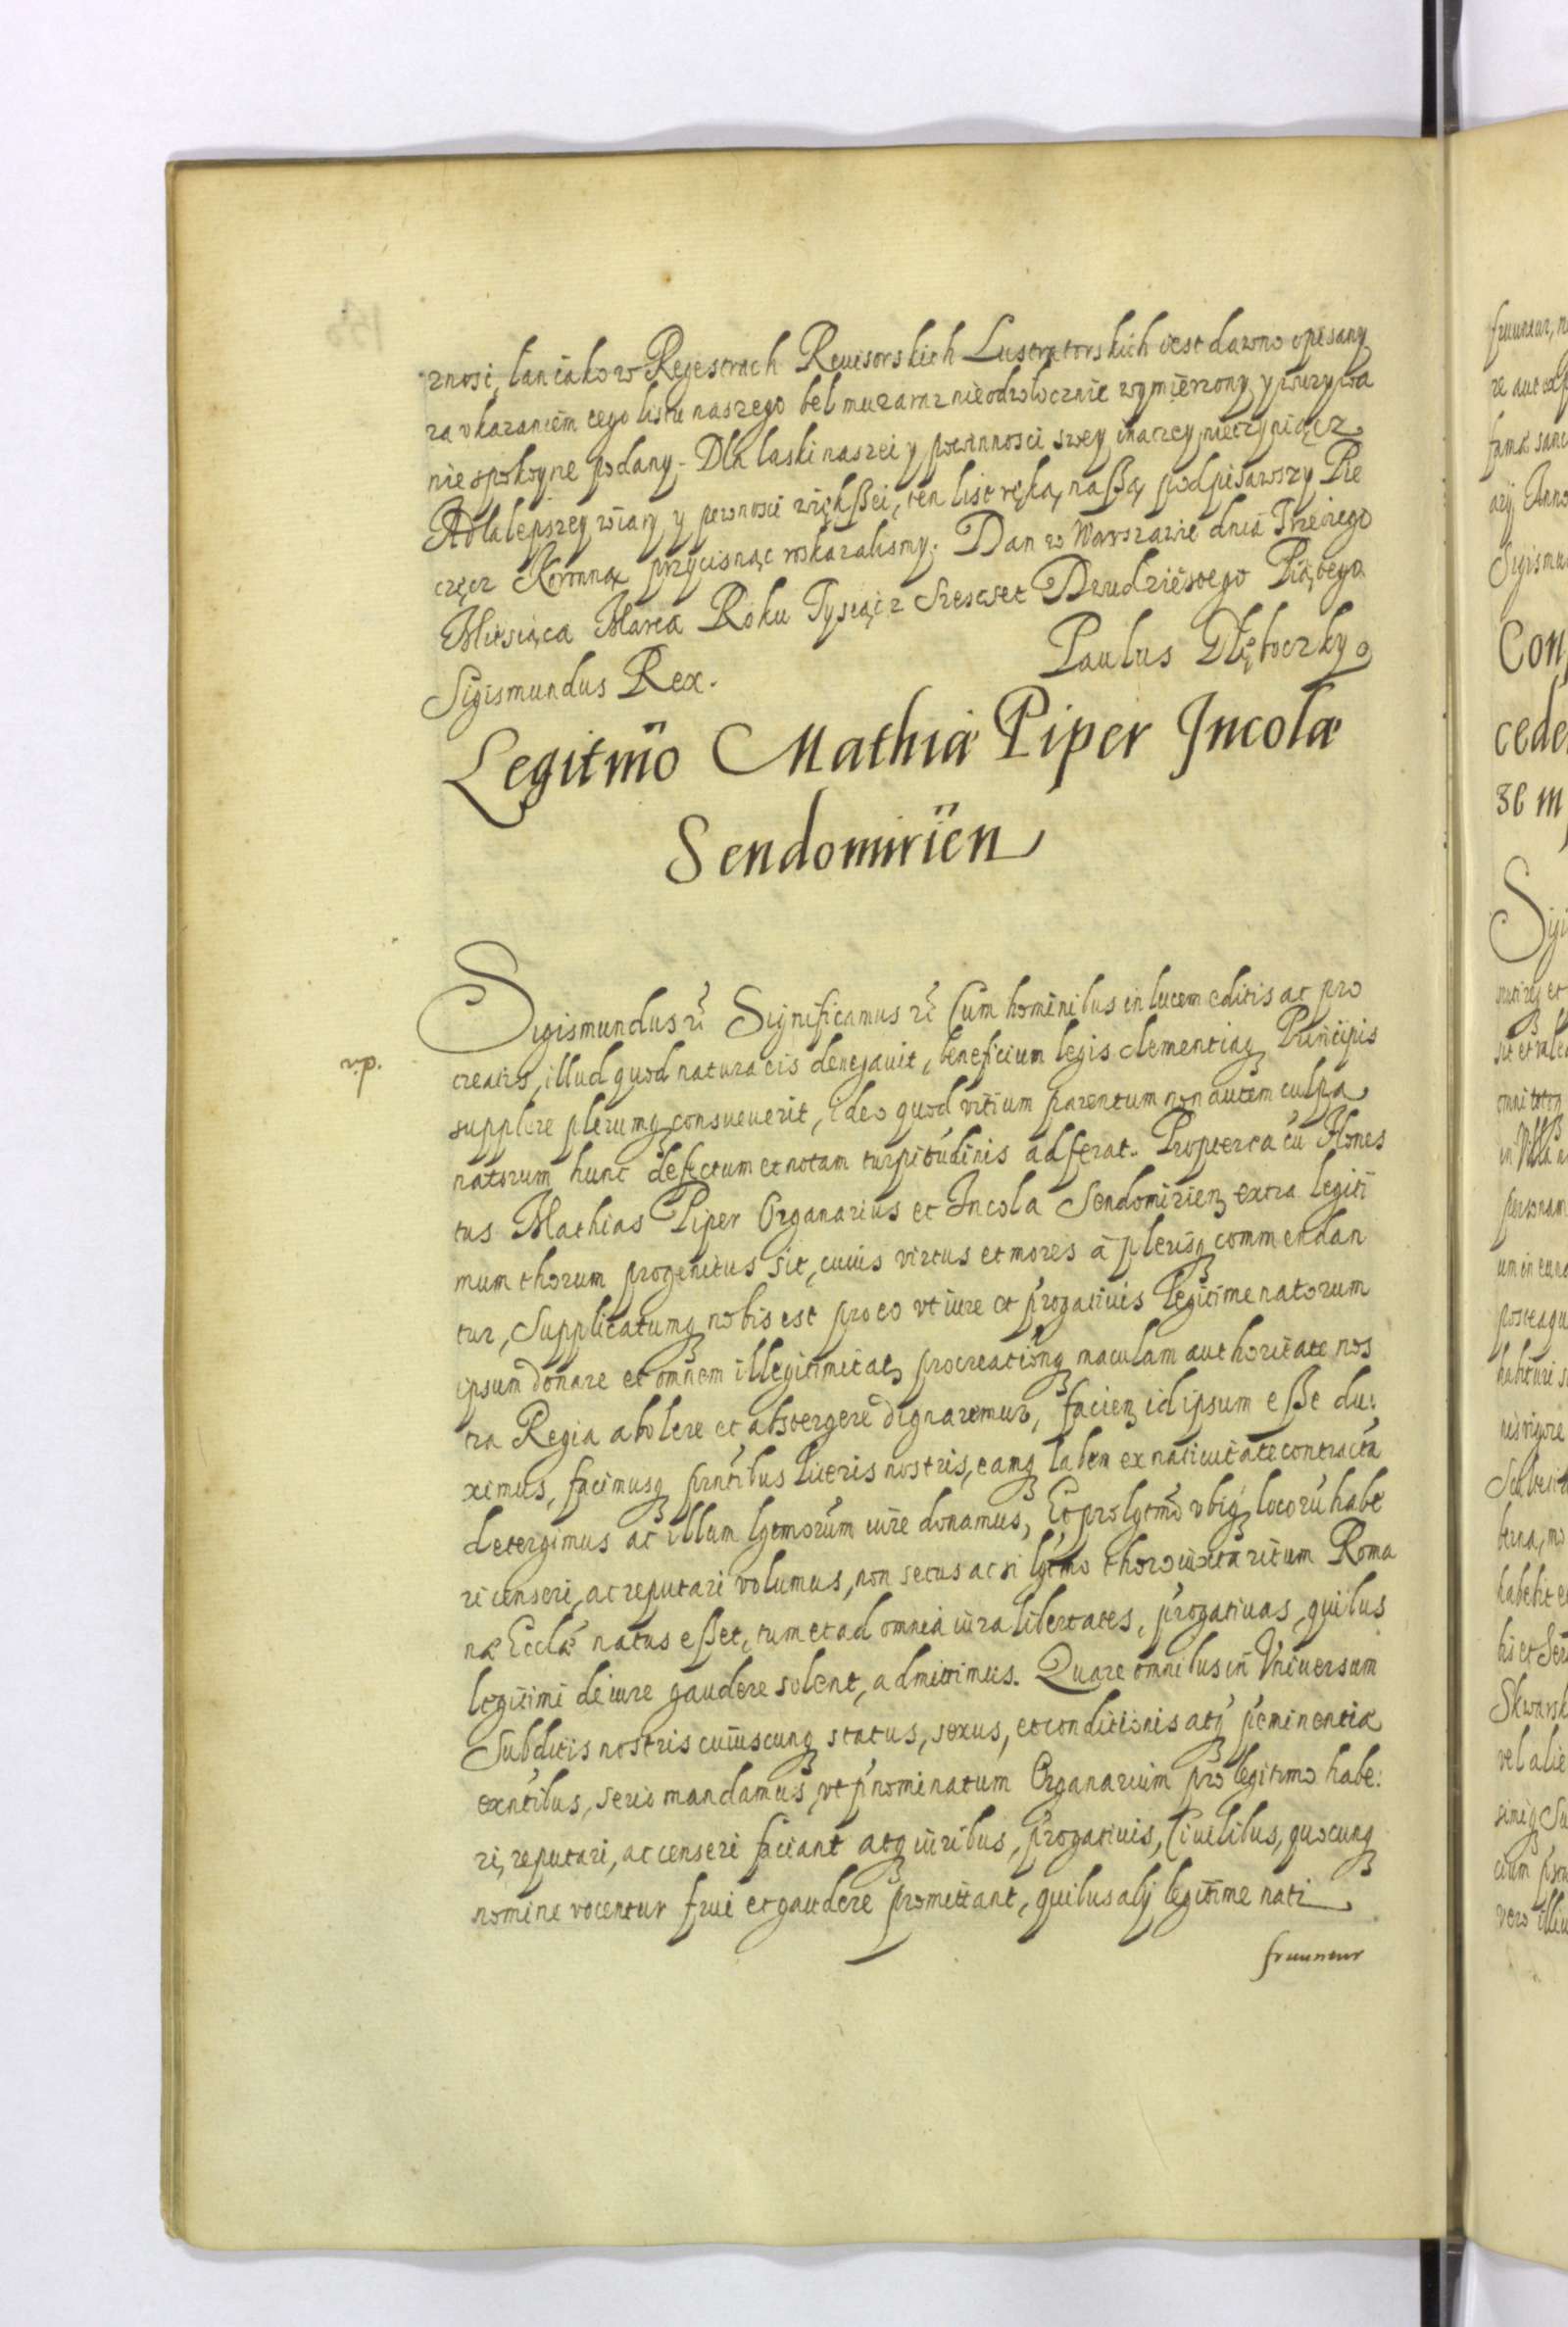 znosi, lan iako w Regestrach Reuisorskich Lustratorskich iest dawno opisany
za vkazaniem tego listu naszego bel mu zaraz nieodwlocznie wymierzony y w uzywa
nie spokoyne podany. Dla laski naszei y powinnosci swey inaczey nieczyniącz
A dla lepszey wiary y pewnosci więkßei, ten list ręką naßą podpisawszy Pie
częcz Koronną przycisnąc roskazalismy. Dan w Warszawie dnia Trzeciego
Miesiąca Marca Roku Tysiącz Szescset Dwudziestego Piątego
Sigismundus Rex.
Paulus Dłętoczky
Legitmo Mathiæ Piper Incolæ
Sendomirien
Sigismundus rc Significamus rc Cum hominibus in lucem editis ac pro
creatis, illud quod natura eis denegauit, beneficium legis clementiaq Principis
supplere plerumq consueuerit, ideo quod vitium parentum non autem culpa
natorum hunc defectum et notam turpitudinis adferat. Propterea cu Hones
tus Mathias Piper Organarius et Incola Sendomirien extra legiti
mum thorum progenitus sit, cuius virtus et mores a plerisq commendan
tur, Supplicatumq nobis est pro eo vt iure et progatiuis legitime natorum
ipsum donare et omnem illegitimitat procreationq maculam authoritate nos
tra Regia abolere et abstergere dignaremur, facien id ipsum eße du:
ximus, facimusq pntibus literis nostris, eamq labem ex natiuitate contracta
detergimus ac illum lgtmorum iure donamus, Et pro lgtmo vbiq locoru habe
ri censeri, ac reputari volumus, non secus ac si lgtmo thoro iuxta ritum Roma
næ Ecclæ natus eßet, tum et ad omnia iura libertates, progatiuas, quibus
legitimi de iure gaudere solent, admittimus. Quare omnibus in Vniuersum
Subditis nostris cuiuscunq status, sexus, et conditionis atq peminentiæ
exntibus, serio mandamus, vt pnominatum Organarium pro legitimo habe:
ri, reputari, ac censeri faciant atq iuribus, progatiuis, Ciuilibus, quocunq
nomine vocentur frui et gaudere promittant, quibus alij legitime nati
fruuntur